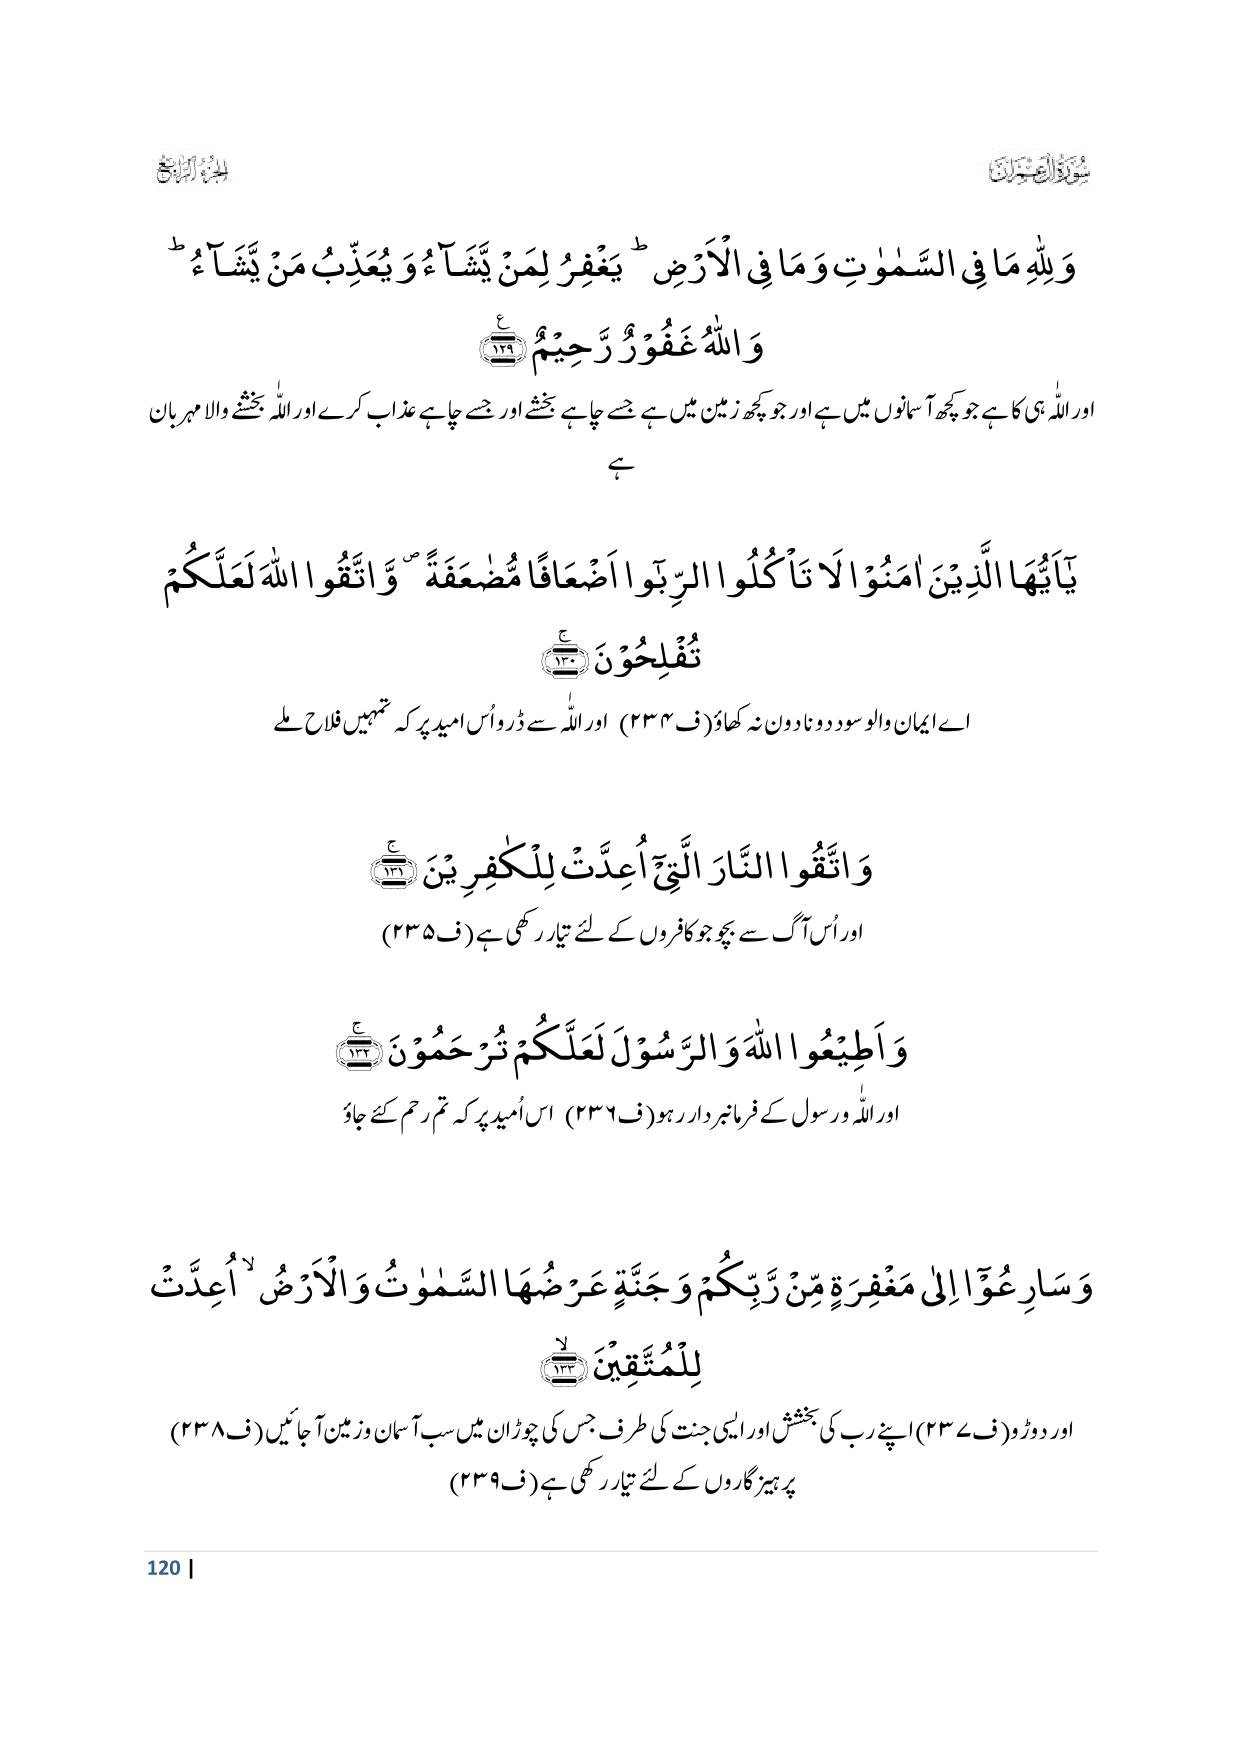 سُوْرَةُ اٰلِ عِمْرٰن
الجزء الرّابع
وَ لِلّٰهِ مَا فِی السَّمٰوٰتِ وَ مَا فِی الْاَرْضِ ؕ یَغْفِرُ لِمَنْ یَّشَآءُ وَ یُعَذِّبُ مَنْ یَّشَآءُ ؕ
وَ اللّٰهُ غَفُوْرٌ رَّحِیْمٌ ﴿۱۲۹﴾ ع
اور اللّٰہ ہی کا ہے جو کچھ آسمانوں میں ہے اور جو کچھ زمین میں ہے جسے چاہے بخشے اور جسے چاہے عذاب کرے اور اللّٰہ بخشنے والا مہربان
ہے
یٰۤاَیُّهَا الَّذِیْنَ اٰمَنُوْا لَا تَاْكُلُوا الرِّبٰۤوا اَضْعَافًا مُّضٰعَفَةً ۪ وَّ اتَّقُوا اللّٰهَ لَعَلَّكُمْ
تُفْلِحُوْنَ ﴿۱۳۰﴾ۚ
اے ایمان والو سود دونا دون نہ کھاؤ (ف۲۳۴) اور اللّٰہ سے ڈرو اُس امید پر کہ تمہیں فلاح ملے
وَ اتَّقُوا النَّارَ الَّتِیْۤ اُعِدَّتْ لِلْكٰفِرِیْنَ ﴿۱۳۱﴾ۚ
اور اُس آگ سے بچو جو کافروں کے لئے تیار رکھی ہے (ف۲۳۵)
وَ اَطِیْعُوا اللّٰهَ وَ الرَّسُوْلَ لَعَلَّكُمْ تُرْحَمُوْنَ ﴿۱۳۲﴾ۚ
اور اللّٰہ و رسول کے فرمانبردار رہو (ف۲۳۶) اس اُمید پر کہ تم رحم کئے جاؤ
وَ سَارِعُوْۤا اِلٰی مَغْفِرَةٍ مِّنْ رَّبِّكُمْ وَ جَنَّةٍ عَرْضُهَا السَّمٰوٰتُ وَ الْاَرْضُ ۙ اُعِدَّتْ
لِلْمُتَّقِیْنَ ﴿۱۳۳﴾ۙ
اور دوڑو (ف۲۳۷) اپنے رب کی بخشش اور ایسی جنت کی طرف جس کی چوڑان میں سب آسمان و زمین آ جائیں (ف۲۳۸)
پرہیزگاروں کے لئے تیار رکھی ہے (ف۲۳۹)
120 |